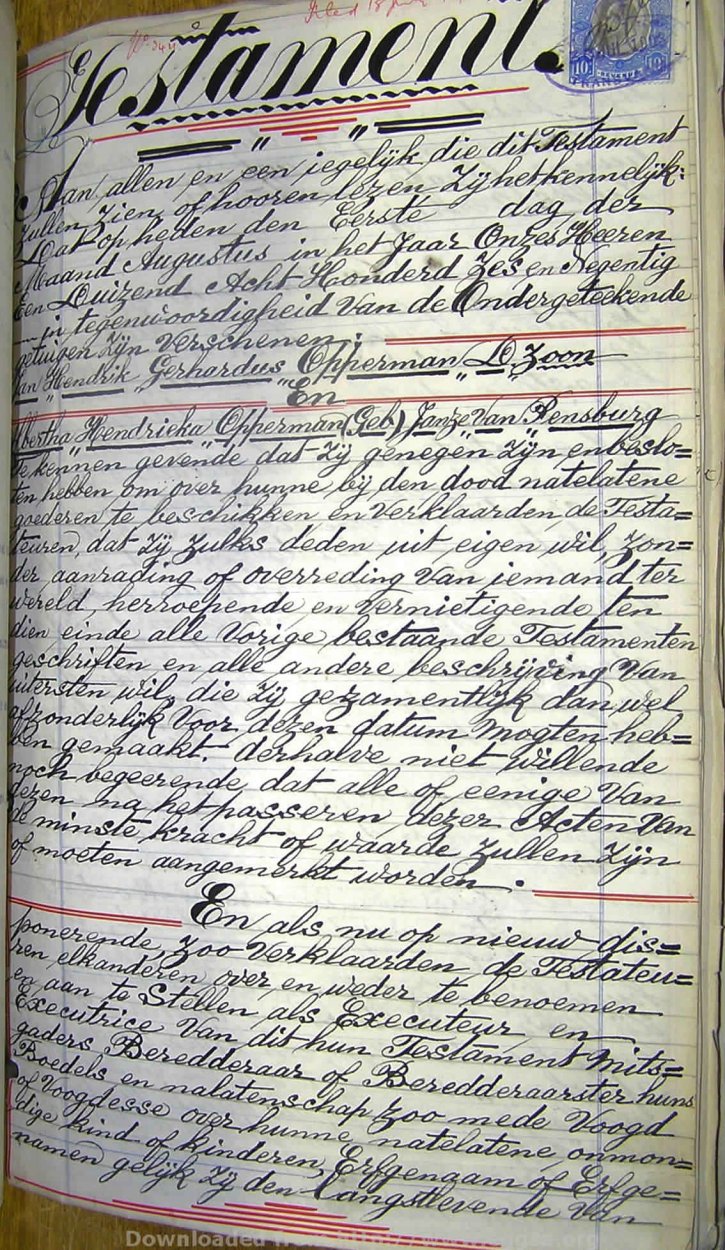 Filed 18
No 344
Testament.
Aan allen en een iegelijk, die dit Testament
zullen zien of hooren lezen Zij het kennelijk:
Dat op heden den Eerste dag der
Maand Augustus in het Jaar Onzes Heeren
Een Duizend Acht Honderd Zes en Negentig
in tegenwoordigheid van de Ondergeteekende
getuigen zijn verschenen:
Jan Hendrik Gerhardus Opperman D. Zoon
En
Albertha Hendrieka Opperman (Geb) Janze Van Rensburg
te kennen gevende dat Zij genegen Zijn, en beslo=
ten hebben om over hunne bij den dood natelatene
goederen te beschikken en verklaarden de Testa=
teuren, dat Zij Zulks deden uit eigen wil, zon=
der aanrading of overreding van iemand ter
wereld, herroepende en vernietigende ten
dien einde alle Vorige bestaande Testamenten
geschriften en alle andere beschrijving Van
uitersten wil, die Zij gezamentlijk dan wel
afzonderlijk Voor dezen datum mogten heb=
ben gemaakt. derhalve niet willende
noch begeerende, dat alle of eenige Van
dezen na het passeren dezer Acten Van
de minste kracht of waarde zullen Zijn
of moeten aangemerkt worden.
En als nu op nieuw dis=
ponerende, zoo Verklaarden de Testateu=
ren elkanderen over en weder te benoemen
en aan te Stellen als Executeur en
Executrice Van dit hun Testament mits=
gaders Beredderaar of Beredderaarster huns
Boedels en nalatenschap zoo mede Voogd
of Voogdesse over hunne natelatene onmon=
dige kind of kinderen, Erfgenaam of Erfge=
namen gelijk Zij den Langstlevende Van
Downloaded from